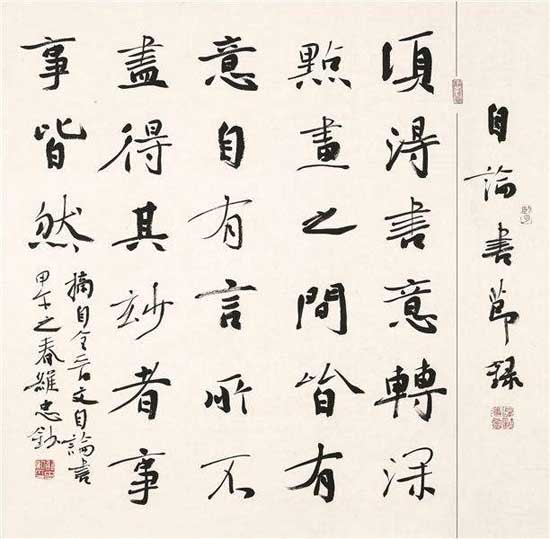 自論書節錄
須得書意轉深
點畫之間皆有
意自有言所不
盡得其妙者事
事皆然
摘自全晋文自論書
甲午之春維忠鈔